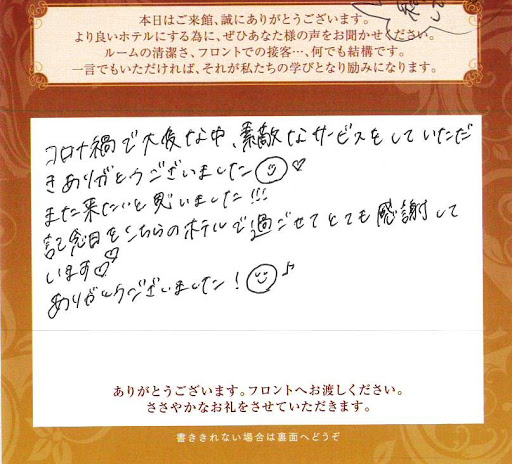 本日はご来館、誠にありがとうございます。
より良いホテルにする為に、ぜひあなた様の声をお聞かせください。
ルームの清潔さ、フロントでの接客…、何でも結構です。
一言でもいただければ、それが私たちの学びとなり励みになります。
コロナ禍で大変な中、素敵なサービスをしていただ
きありがとうございました☺♡
また来たいと思いました!!!
記念日をこちらのホテルで過ごせてとても感謝して
います♡♡
ありがとうございました！☺♪
ありがとうございます。フロントへお渡しください。
ささやかなお礼をさせていただきます。
書ききれない場合は裏面へどうぞ